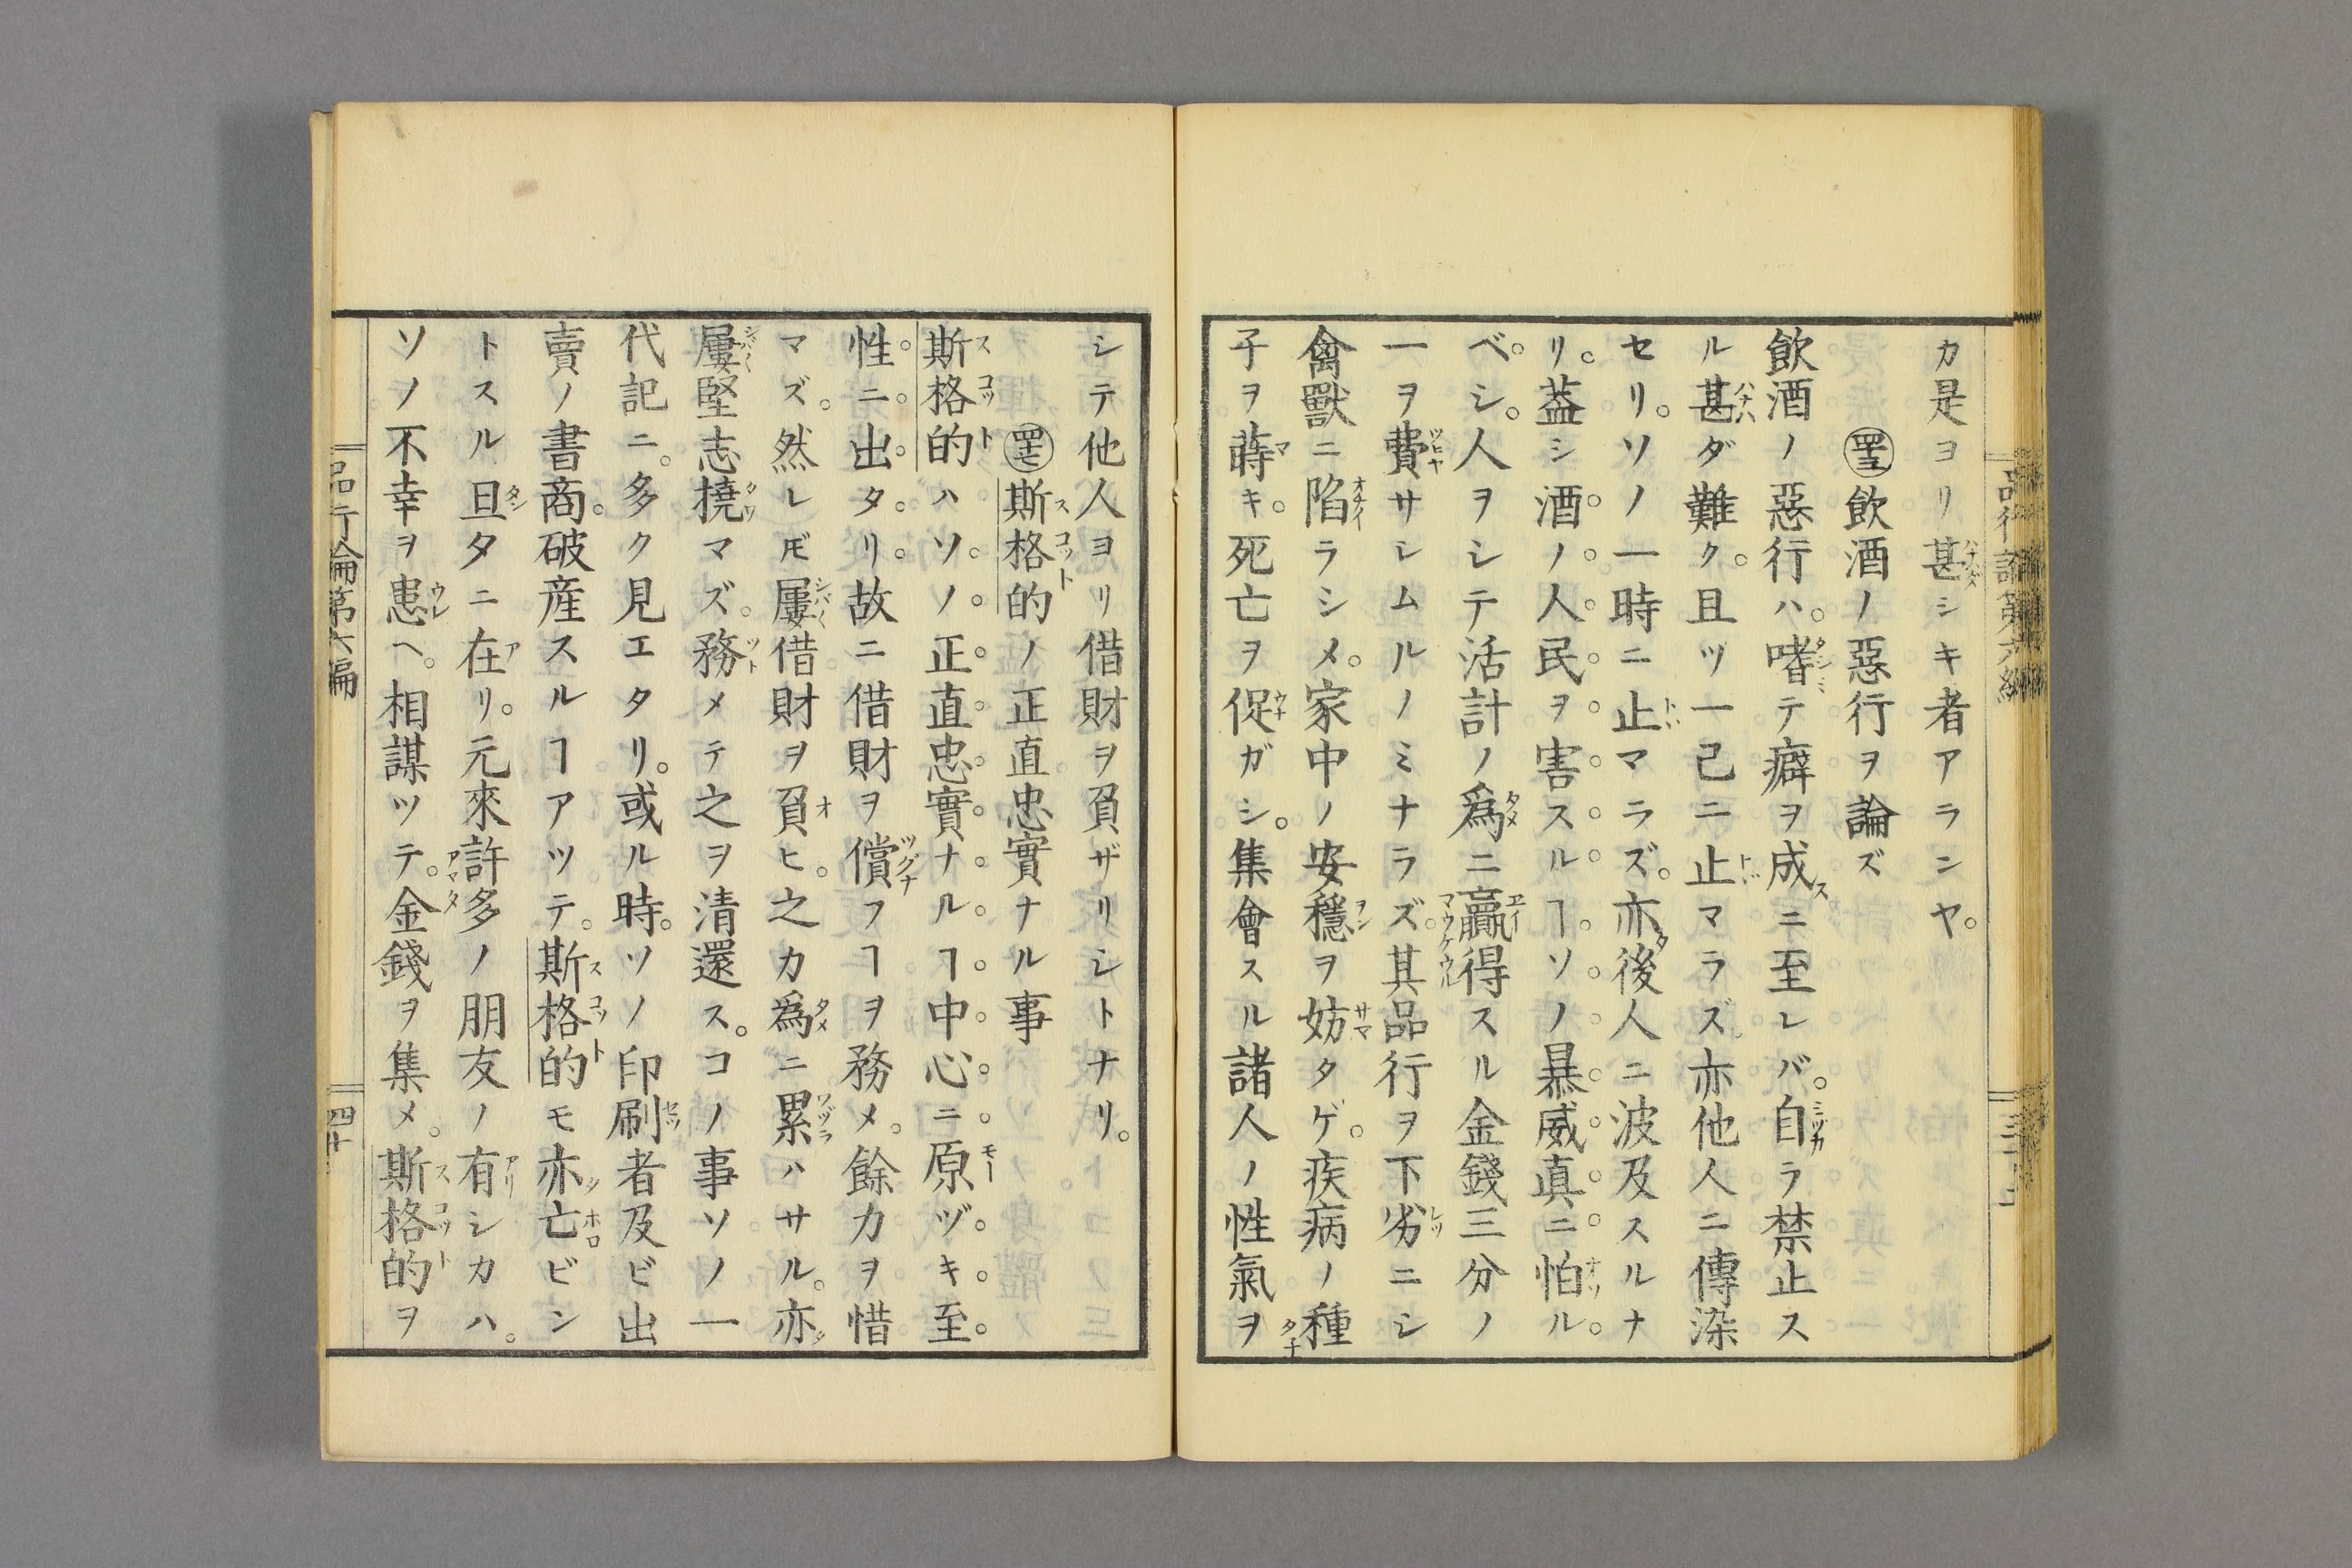 カ是ヨリ甚シキ者アランヤ。
飮酒ノ惡行ヲ論ズ
飮酒ノ惡行ハ。嗜テ癖ヲ成ニ至レバ。自ラ禁止ス
ル甚ダ難ク。且ツ一己ニ止マラズ亦他人ニ傳染
セリ。ソノ一時ニ止マラズ。亦後人ニ波及スルナ
リ。葢シ酒ノ人民ヲ害スルヿソノ暴威真ニ怕ル
ベシ。人ヲシテ活計ノ爲ニ贏得スル金錢三分ノ
一ヲ費サレムルノミナラズ。其品行ヲ下劣ニシ
禽獸ニ陷ラシメ。家中ノ安穩ヲ妨タゲ。疾病ノ種
子ヲ蒔キ。死亡ヲ促ガシ。集會スル諸人ノ性氣ヲ
シテ他人ヨリ借財ヲ負ザリシトナリ。
斯格的ノ正直忠實ナル事
斯格的ハソノ正直忠實ナルヿ中心ニ原ヅキ至
性ニ出タリ。故ニ借財ヲ償フヿヲ務メ。餘力ヲ惜
マズ。然レ𪜈屢借財ヲ負ヒ。之カ爲ニ累ハサル。亦
屢堅志撓マズ。務メテ之ヲ清還ス。コノ事ソノ一
代記ニ。多ク見エタリ。或ル時。ソノ印刷者及ビ出
賣ノ書商。破産スルヿアツテ。斯格的モ亦亡ビン
トスル旦タニ在リ。元來許多ノ朋友ノ有シカハ。
ソノ不幸ヲ患ヘ。相謀ツテ。金錢ヲ集メ。斯格的ヲ
品行論第六編
四十